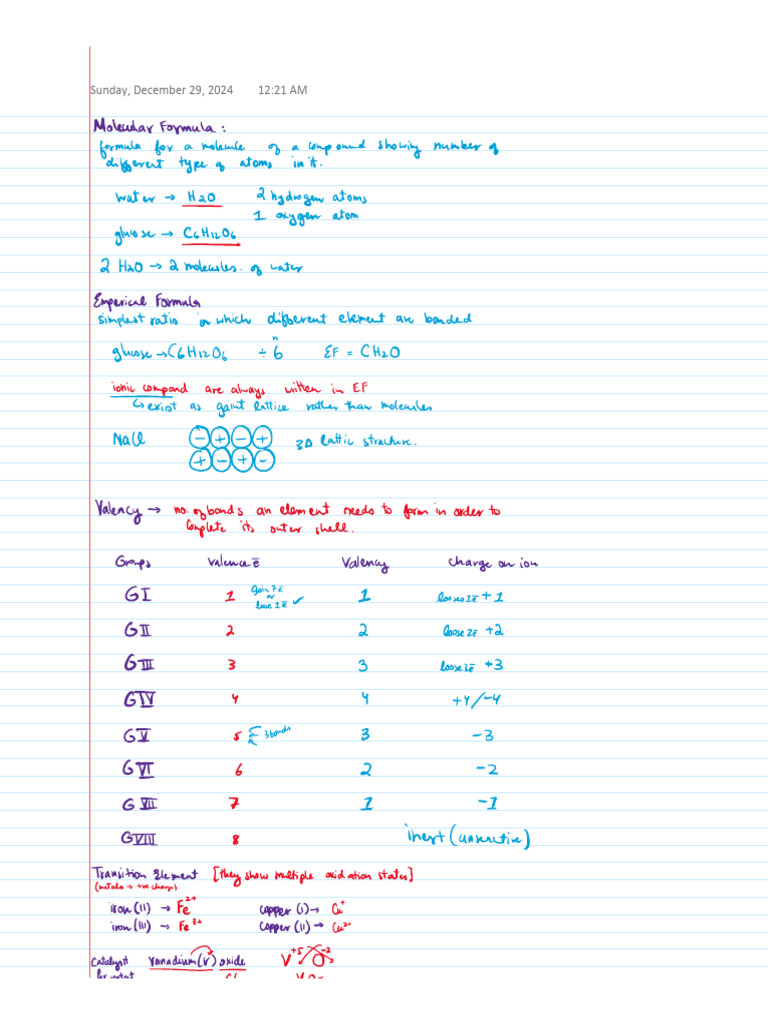 Sunday, December 29, 2024 12:21 AM
Molecular Formula :
formula for a molecule of a compound showing number of
different type of atoms in it.
water → H2O 2 hydrogen atoms
1 oxygen atom
glucose → C6H12O6
2 H2O → 2 molecules. of water
Emperical Formula
simplest ratio in which different element are bonded
glucose → C6H12O6 ÷ 6 EF = CH2O
n
ionic compond are always written in EF
↳ exist as gaint lattice rather than molecules
NaCl − + − + 3D lattic structure.
+ − + −
Valency → no. of bonds an element needs to form in order to
complete its outer shell.
Groups valence ē Valency charge on ion
G I 1 gain 7ē or lose 1ē ✓ 1 looses 1ē +1
G II 2 2 loose 2ē +2
G III 3 3 loose 3ē +3
G IV 4 4 +4/−4
G V 5 3 bonds 3 −3
G VI 6 2 −2
G VII 7 1 −1
G VIII 8 inert (unreactive)
Transition Element [they show multiple oxidation states]
(metals → +ve charge)
iron (II) → Fe2+ copper (I) → Cu+
iron (III) → Fe3+ copper (II) → Cu2+
catalyst vanadium (V) oxide V+5 O−2